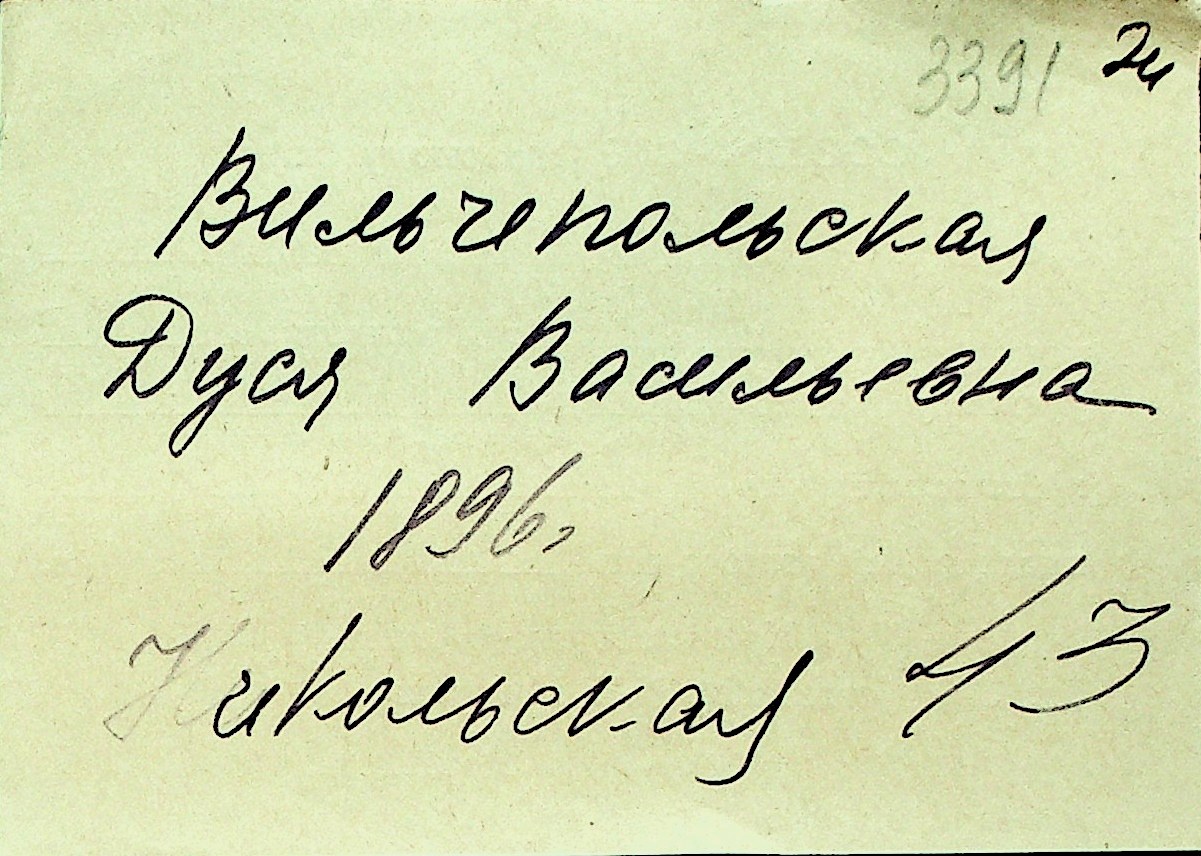 3391
Вильчепольская
Дуся Васильевна
1896г
Никольская 43